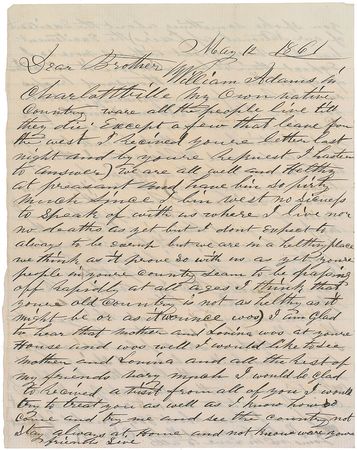 May 12 1861
Dear Brother
William Adams in
Charlottville my own native
Country ware all the people live till
they die Except a few that leave for
the west I received youre letter last
night and by youre request I hasten
to answer) We are all well and Helthy
at preasant and have bin so prity
much since I bin west no sicness
to speak of with us where I live nor
no deaths as yet but I dont Expect to
always to be exemp but we are in a helthy place
we think as it prove so with us as yet youre
people in youre country seam to be
off rapidly at all ages I think that
youre old country is not as helthy as it
might be or as it wonce was) I am Glad
to hear that mother and Lovina was at youre
House and was well I would like to see
mother and Lovina and all the rest of
my friends vary much I would be glad
to received a visit from all of you I would
try to treat you as well as I know how so
come and try me and see the country not
stay always at Home and not know ware youre
friends live